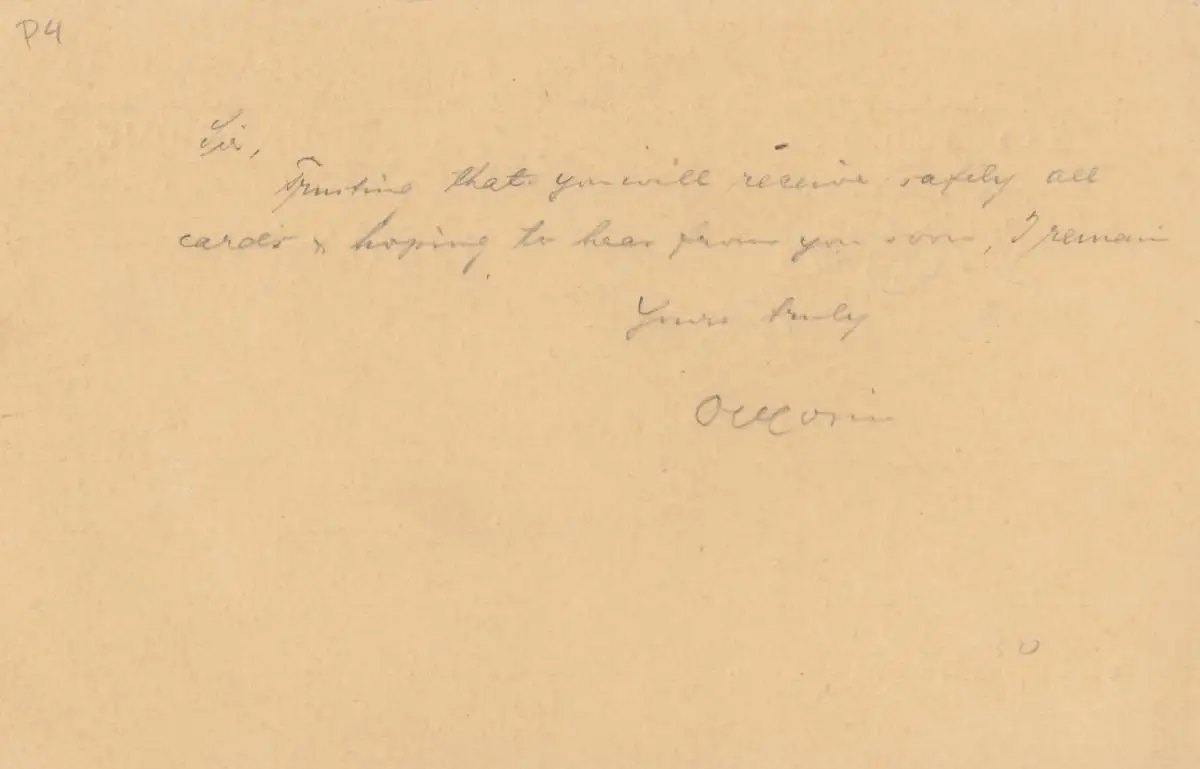 P4
Sir,
Trusting that you will receive safely all
cards & hoping to hear from you soon, I remain
Yours truly